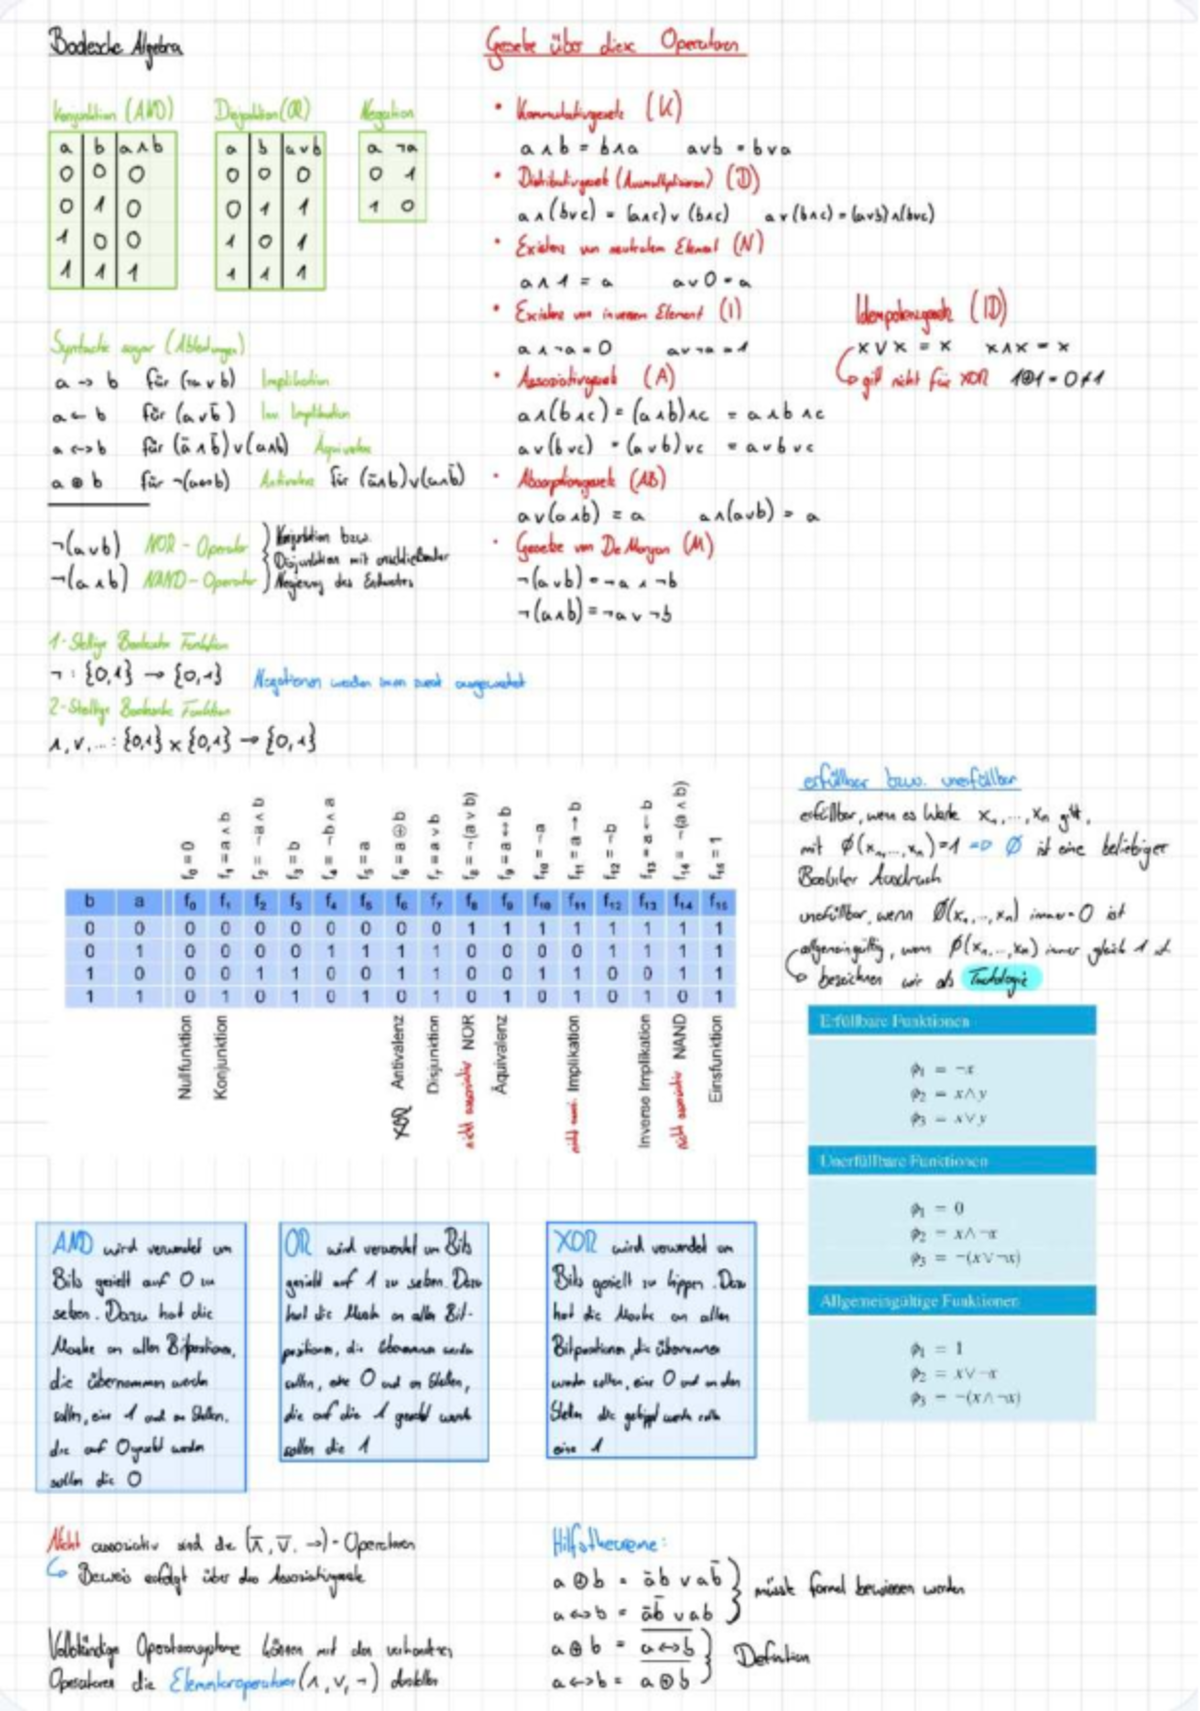 Boolesche Algebra
Konjunktion (AND)
a b a∧b
0 0 0
0 1 0
1 0 0
1 1 1
Disjunktion (OR)
a b a∨b
0 0 0
0 1 1
1 0 1
1 1 1
Negation
a ¬a
0 1
1 0
Syntactic sugar (Ableitungen)
a → b für (¬a ∨ b) Implikation
a ← b für (a ∨ b̄) Inv. Implikation
a ↔ b für (ā ∧ b̄) ∨ (a∧b) Äquivalenz
a ⊕ b für ¬(a↔b) Antivalenz für (ā∧b)∨(a∧b̄)
¬(a∨b) NOR - Operator
¬(a∧b) NAND - Operator
Konjunktion bzw.
Disjunktion mit anschließender
Negierung des Endwertes
1-Stellige Boolesche Funktion
¬ : {0,1} → {0,1} Negationen werden immer zuerst ausgewertet
2-Stellige Boolesche Funktion
∧, ∨, ... : {0,1} × {0,1} → {0,1}
Gesetze über diese Operatoren
• Kommutativgesetz (K)
a ∧ b = b∧a a∨b = b∨a
• Distributivgesetz (Ausmultiplizieren) (D)
a∧(b∨c) = (a∧c)∨(b∧c) a∨(b∧c) = (a∨b)∧(b∨c)
• Existenz von neutralem Element (N)
a∧1 = a a∨0 = a
• Existenz von inversem Element (I)
a∧¬a = 0 a∨¬a = 1
• Assoziativgesetz (A)
a∧(b∧c) = (a∧b)∧c = a∧b∧c
a∨(b∨c) = (a∨b)∨c = a∨b∨c
• Absorptionsgesetz (AB)
a∨(a∧b) = a a∧(a∨b) = a
• Gesetze von De Morgan (M)
¬(a∨b) = ¬a ∧ ¬b
¬(a∧b) = ¬a ∨ ¬b
Idempotenzgesetz (ID)
x∨x = x x∧x = x
gilt nicht für XOR 1⊕1 = 0 ≠ 1
f₀ = 0
f₁ = a ∧ b
f₂ = ¬a ∧ b
f₃ = b
f₄ = ¬b ∧ a
f₅ = a
f₆ = a ⊕ b
f₇ = a ∨ b
f₈ = ¬(a ∨ b)
f₉ = a ↔ b
f₁₀ = ¬a
f₁₁ = a → b
f₁₂ = ¬b
f₁₃ = a ← b
f₁₄ = ¬(a ∧ b)
f₁₅ = 1
b a f₀ f₁ f₂ f₃ f₄ f₅ f₆ f₇ f₈ f₉ f₁₀ f₁₁ f₁₂ f₁₃ f₁₄ f₁₅
0 0 0 0 0 0 0 0 0 0 1 1 1 1 1 1 1 1
0 1 0 0 0 0 1 1 1 1 0 0 0 0 1 1 1 1
1 0 0 0 1 1 0 0 1 1 0 0 1 1 0 0 1 1
1 1 0 1 0 1 0 1 0 1 0 1 0 1 0 1 0 1
Nullfunktion
Konjunktion
Antivalenz
XOR
Disjunktion
NOR
nicht assoziativ
Äquivalenz
Implikation
nicht assoz.
Inverse Implikation
NAND
nicht assoziativ
Einsfunktion
erfüllbar bzw. unerfüllbar
erfüllbar, wenn es Werte x₁, ..., xₙ gibt,
mit Ø(x₁,...,xₙ)=1 => Ø ist eine beliebiger
Boolscher Ausdruck
unerfüllbar, wenn Ø(x₁,...,xₙ) immer = 0 ist
allgemeingültig, wenn Ø(x₁,...,xₙ) immer gleich 1 ist
bezeichnen wir als Tautologie
Erfüllbare Funktionen
φ₁ = ¬x
φ₂ = x∧y
φ₃ = x∨y
Unerfüllbare Funktionen
φ₁ = 0
φ₂ = x∧¬x
φ₃ = ¬(x∨¬x)
Allgemeingültige Funktionen
φ₁ = 1
φ₂ = x∨¬x
φ₃ = ¬(x∧¬x)
AND wird verwendet um
Bits gezielt auf 0 zu
setzen. Dazu hat die
Maske an allen Bitpositionen,
die übernommen werden
sollen, eine 1 und an Stellen,
die auf 0 gesetzt werden
sollen die 0
OR wird verwendet um Bits
gezielt auf 1 zu setzen. Dazu
hat die Maske an allen Bit-
positionen, die übernommen werden
sollen, eine 0 und an Stellen,
die auf die 1 gesetzt werden
sollen die 1
XOR wird verwendet um
Bits gezielt zu kippen. Dazu
hat die Maske an allen
Bitpositionen, die übernommen
werden sollen, eine 0 und an den
Stellen die gekippt werden sollen
eine 1
Nicht assoziativ sind die (⊼, ⊽, →) - Operatoren
Beweis erfolgt über das Assoziativgesetz
Vollständige Operatorensysteme können mit den vorhandenen
Operatoren die Elementaroperatoren (∧, ∨, ¬) darstellen
Hilfstheoreme:
a ⊕ b = āb ∨ ab̄
a ↔ b = āb̄ ∨ ab
müsste formal bewiesen werden
a ⊕ b = ¬(a ↔ b)
a ↔ b = ¬(a ⊕ b)
Definition